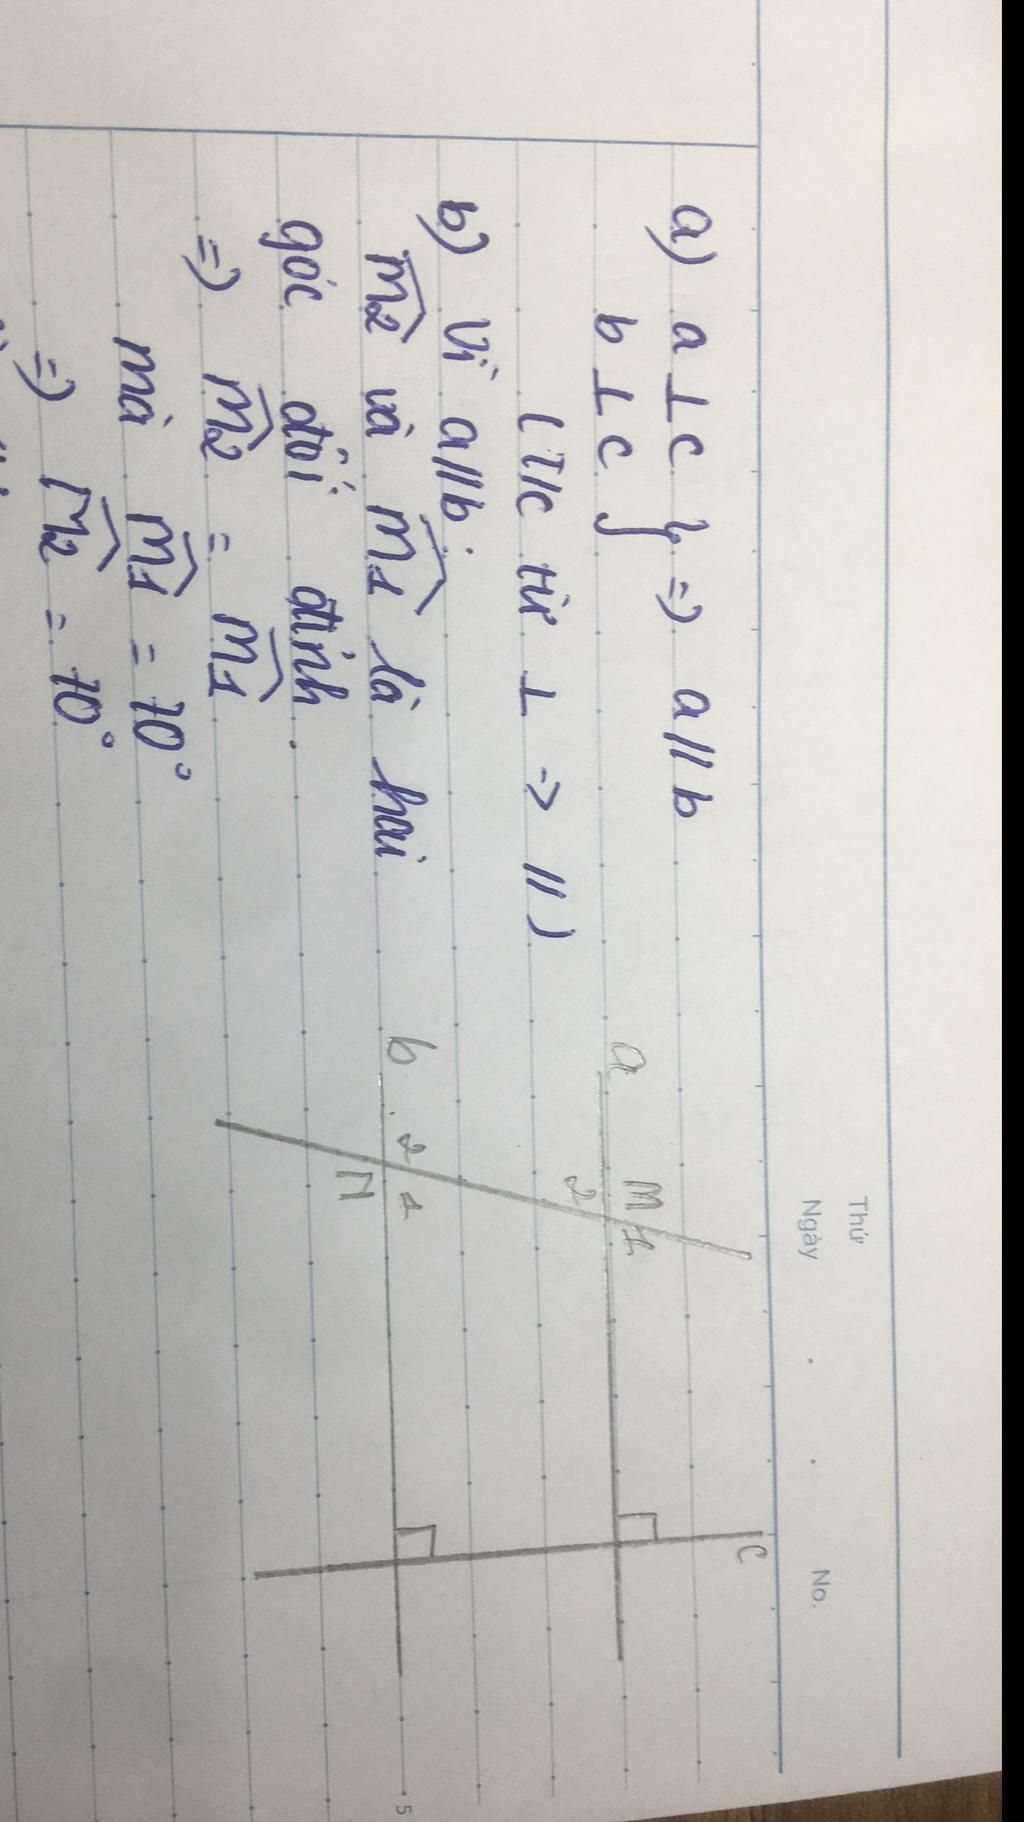 Thứ
Ngày . . No.
a) a ⊥ c } => a // b
b ⊥ c
(T/c từ ⊥ => //)
b) Vì a // b.
M̂2 và M̂1 là hai
góc đối đỉnh.
=> M̂2 = M̂1
mà M̂1 = 70°
=> M̂2 = 70°
c
a M 1
2
b 2 1
N
5